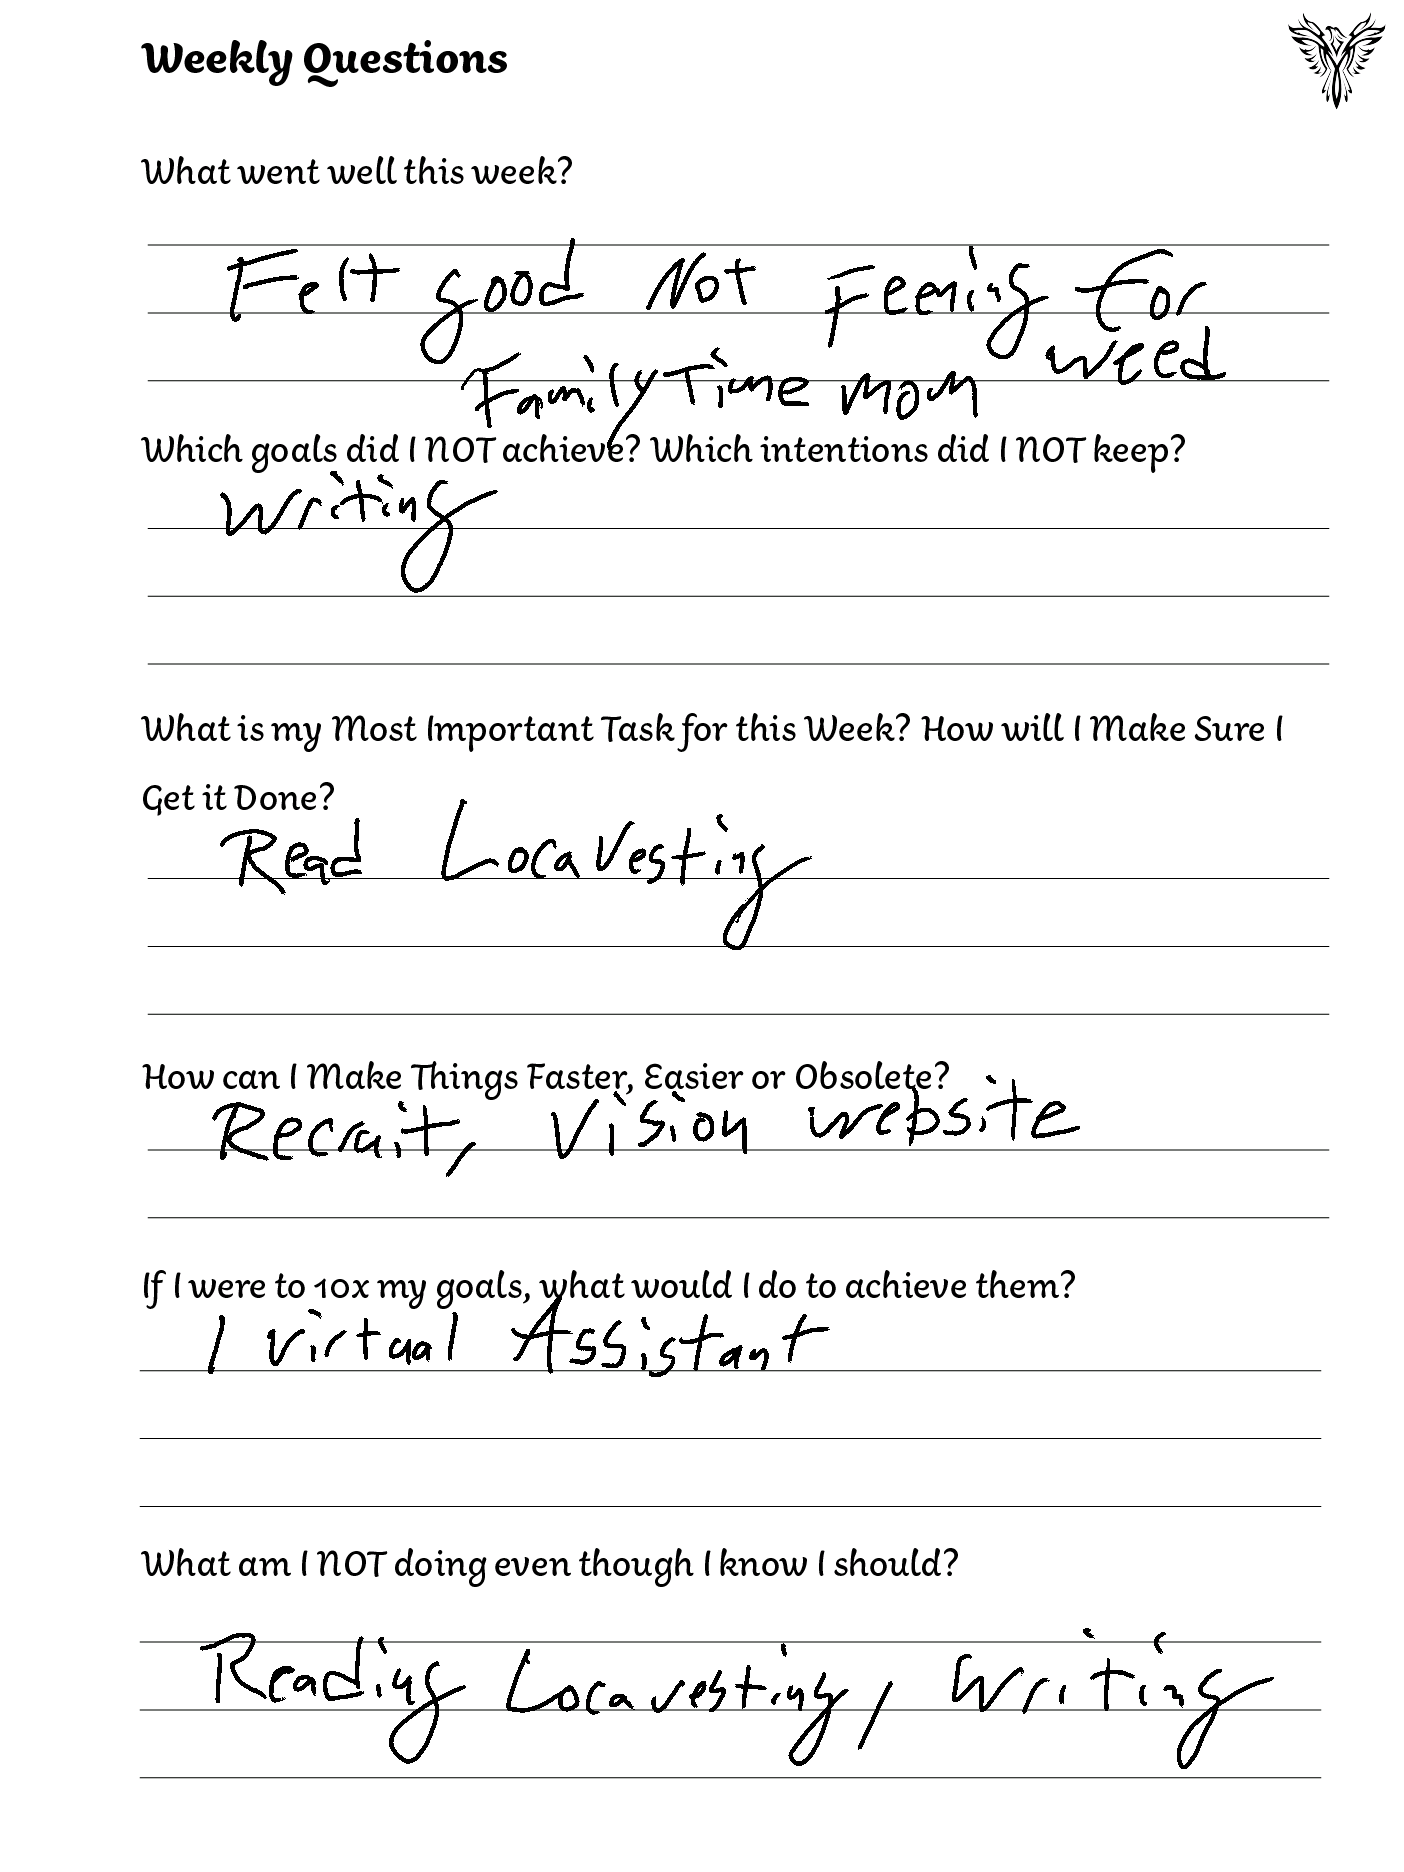 Weekly Questions
What went well this week?
Felt good Not Feening for
weed
Family Time mom
Which goals did I NOT achieve? Which intentions did I NOT keep?
Writing
What is my Most Important Task for this Week? How will I Make Sure I
Get it Done?
Read LocaVesting
How can I Make Things Faster, Easier or Obsolete?
Recruit, Vision website
If I were to 10x my goals, what would I do to achieve them?
1 Virtual Assistant
What am I NOT doing even though I know I should?
Reading Locavesting, Writing